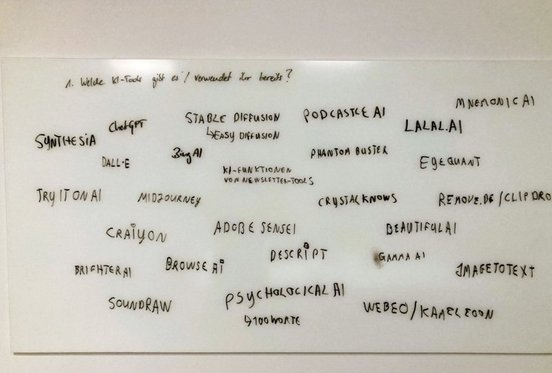 1. Welche KI-Tools gibt es / verwendet ihr bereits?
MNEMONIC AI
STABLE DIFFUSION
↳ EASY DIFFUSION
PODCASTLE AI
LALAL.AI
ChatGPT
SYNTHESIA
DALL-E
Bing AI
PHANTOM BUSTER
EYEQUANT
KI-FUNKTIONEN
VON NEWSLETTER-TOOLS
TRY IT ON AI
MIDJOURNEY
CRYSTALKNOWS
REMOVE.BG/CLIPDRO
CRAIYON
ADOBE SENSEI
BEAUTIFUL AI
DESCRIPT
GAMMA AI
BRIGHTER AI
BROWSE AI
IMAGETOTEXT
SOUNDRAW
PSYCHOLOGICAL AI
↳ 100 WORTE
WEBEO/KAMELEOON